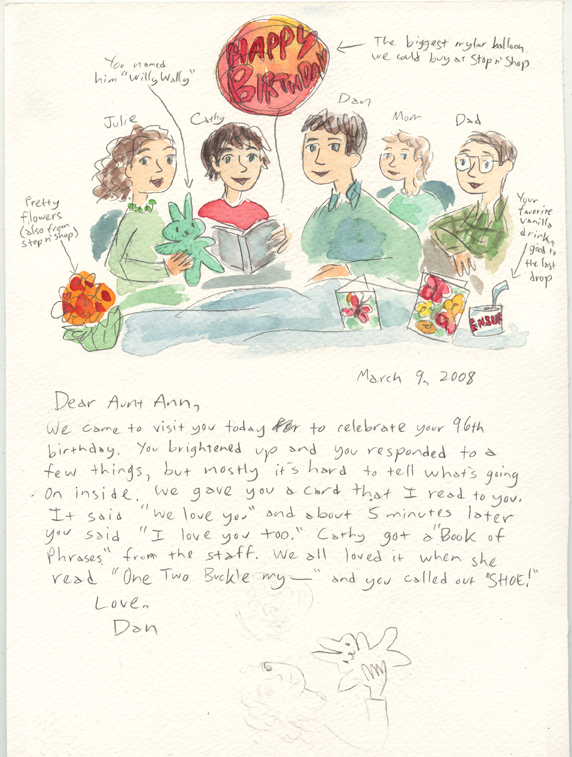 HAPPY
BIRTHDAY
The biggest mylar balloon
we could buy at Stop n' Shop
You named
him "Willy Wally"
Julie
Cathy
Dan
Mom
Dad
Pretty
flowers
(also from
stop n' shop)
Your
favorite
vanilla
drink,
good to
the last
drop
ENSU
March 9, 2008
Dear Aunt Ann,
We came to visit you today to celebrate your 96th
birthday. You brightened up and you responded to a
few things, but mostly it's hard to tell what's going
on inside. We gave you a card that I read to you.
It said "We love you" and about 5 minutes later
you said "I love you too." Cathy got a "Book of
Phrases" from the staff. We all loved it when she
read "One Two Buckle my —" and you called out "SHOE!"
Love,
Dan